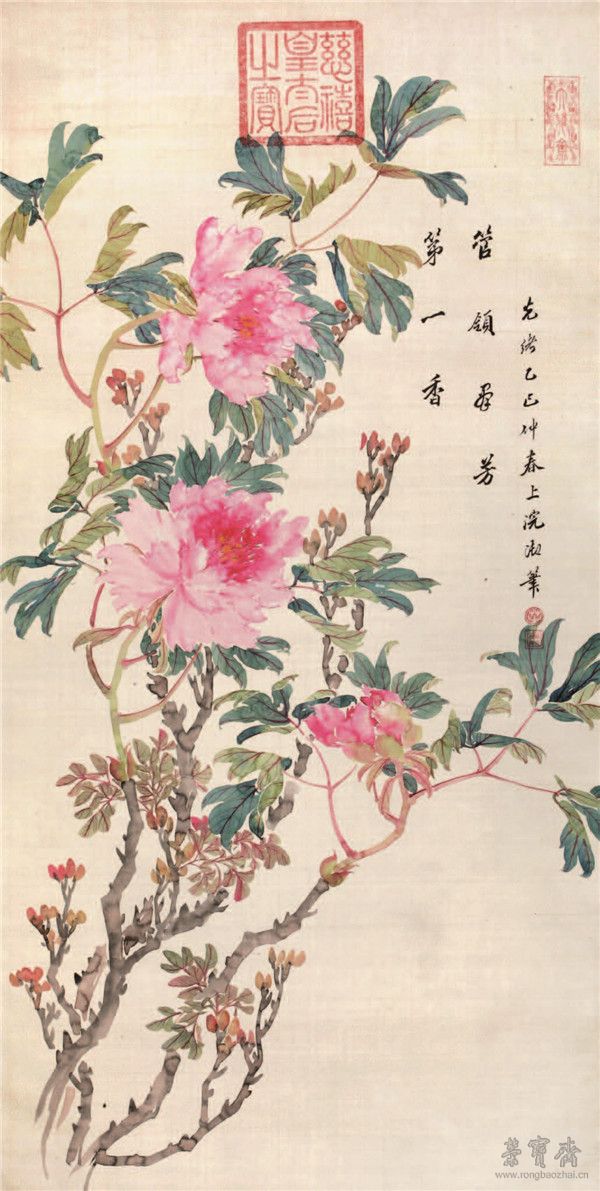 慈禧
皇太后
之寶
管領羣芳
第一香
光緒乙巳仲春上浣御筆
榮寶齋
www.rongbaozhai.cn